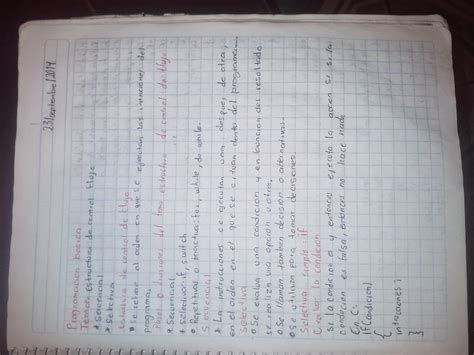 23/septiembre/2019
Programacion basica
Tema: estructuras de control flujo
* Secuencial
* Selectiva
Estructura de control de flujo
* se refiere al orden en que se ejecutan las instrucciones del
programa.
Pasos o divisiones del tema estructura de control de flujo
* Secuencial
* Selectiva: if, switch
* Repetitivas o iteractivas: for, while, do while.
Secuencial
* La instrucciones se ejecutan una despues de otra,
en el orden en el que se situan dentro del programa.
Selectiva
o Se evalua una condicion y en funcion del resultado
se realiza una opcion u otra.
o Se llaman tambien decision o alternativas.
o Se utilizan para tomar decisiones.
Selectiva simple: if
Evaluar la condicion
Si la condicion es v entonces ejecuta la accion si si la
condicion es falsa, entonces no hace nada
En C:
if(Condicion)
{
intrucciones;
}